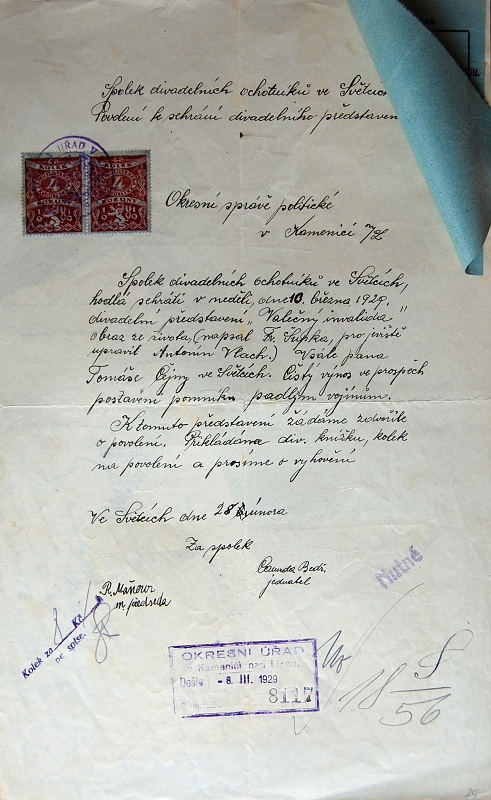 Spolek divadelních ochotníků ve Světcích
Povolení ke sehrání divadelního představen
ÚŘAD V
KOLEK KOLEK
4 4
KORUNY KORUNY
1919 1919
Okresní správě politické
v Kamenici n/L
Spolek divadelních ochotníků ve Světcích,
hodlá sehráti v neděli, dne 10. března 1929,
divadelní představení „Válečný invalida"
obraz ze života, (napsal Fr. Supka, pro jeviště
upravil Antonín Vlach.) V sále pana
Tomáše Číjny ve Světcích. Čistý výnos ve prospěch
postavení pomníku padlým vojínům.
K tomuto představení žádáme zdvořile
o povolení. Přikládáme div. knížku, kolek
na povolení a prosíme o vyhovění
Ve Světcích dne 28 února
Za spolek
jednatel
R. Maňour
předseda
Nutné
Kolek za 8 Kč
ve spise.
OKRESNÍ ÚŘAD
v Kamenici nad Lipou.
Došlo: - 8. III. 1929
8117
18 S
56